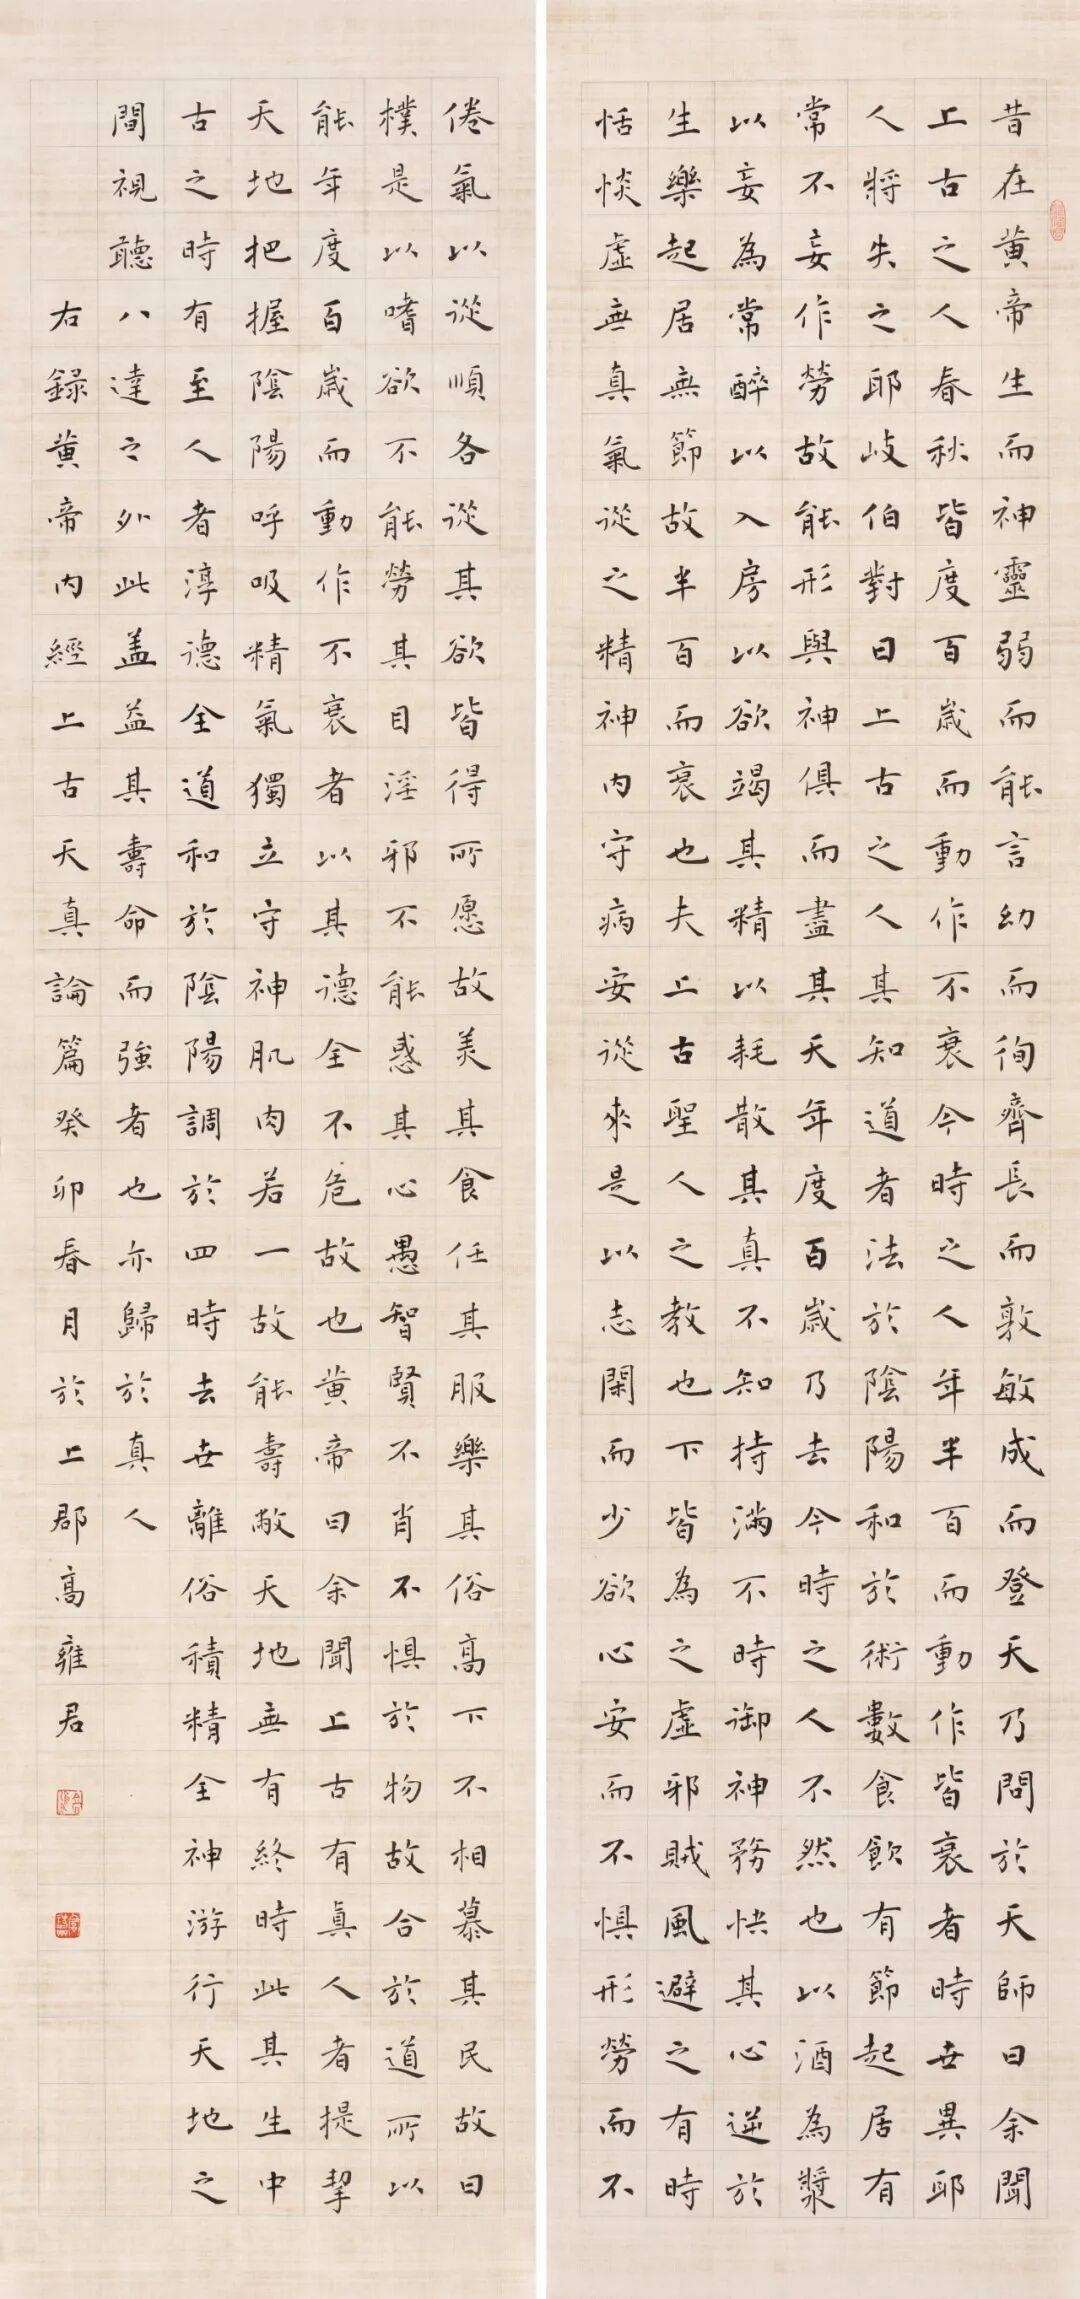 昔在黄帝生而神靈弱而能言幼而徇齊長而敦敏成而登天乃問於天師曰余聞
上古之人春秋皆度百歲而動作不衰今時之人年半百而動作皆衰者時世異耶
人將失之耶岐伯對曰上古之人其知道者法於陰陽和於術數食飲有節起居有
常不妄作勞故能形與神俱而盡其天年度百歲乃去今時之人不然也以酒為漿
以妄為常醉以入房以欲竭其精以耗散其真不知持滿不時御神務快其心逆於
生樂起居無節故半百而衰也夫上古聖人之教也下皆為之虛邪賊風避之有時
恬惔虛無真氣從之精神內守病安從來是以志閑而少欲心安而不惧形勞而不
倦氣以從順各從其欲皆得所愿故美其食任其服樂其俗高下不相慕其民故曰
樸是以嗜欲不能勞其目淫邪不能惑其心愚智賢不肖不惧於物故合於道所以
能年度百歲而動作不衰者以其德全不危故也黄帝曰余聞上古有真人者提挈
天地把握陰陽呼吸精氣獨立守神肌肉若一故能壽敝天地無有終時此其生中
古之時有至人者淳德全道和於陰陽調於四時去世離俗積精全神游行天地之
間視聽八達之外此盖益其壽命而強者也亦歸於真人
右錄黄帝內經上古天真論篇癸卯春月於上郡高雍君